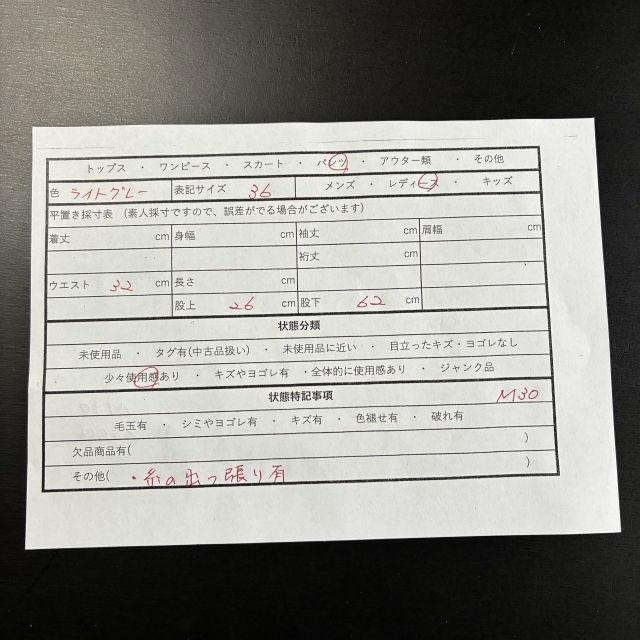 トップス ・ ワンピース ・ スカート ・ パンツ ・ アウター類 ・ その他
色 ライトグレー 表記サイズ 36 メンズ ・ レディース ・ キッズ
平置き採寸表 (素人採寸ですので、誤差がでる場合がございます)
着丈 cm 身幅 cm 袖丈 cm 肩幅 cm
裄丈 cm
ウエスト 32 cm 長さ
股上 26 cm 股下 62 cm
状態分類
未使用品 ・ タグ有(中古品扱い) ・ 未使用品に近い ・ 目立ったキズ・ヨゴレなし
少々使用感あり ・ キズやヨゴレ有 ・全体的に使用感あり ・ ジャンク品
状態特記事項 M30
毛玉有 ・ シミやヨゴレ有 ・ キズ有 ・ 色褪せ有 ・ 破れ有
欠品商品有( )
その他( ・糸の出っ張り有 )